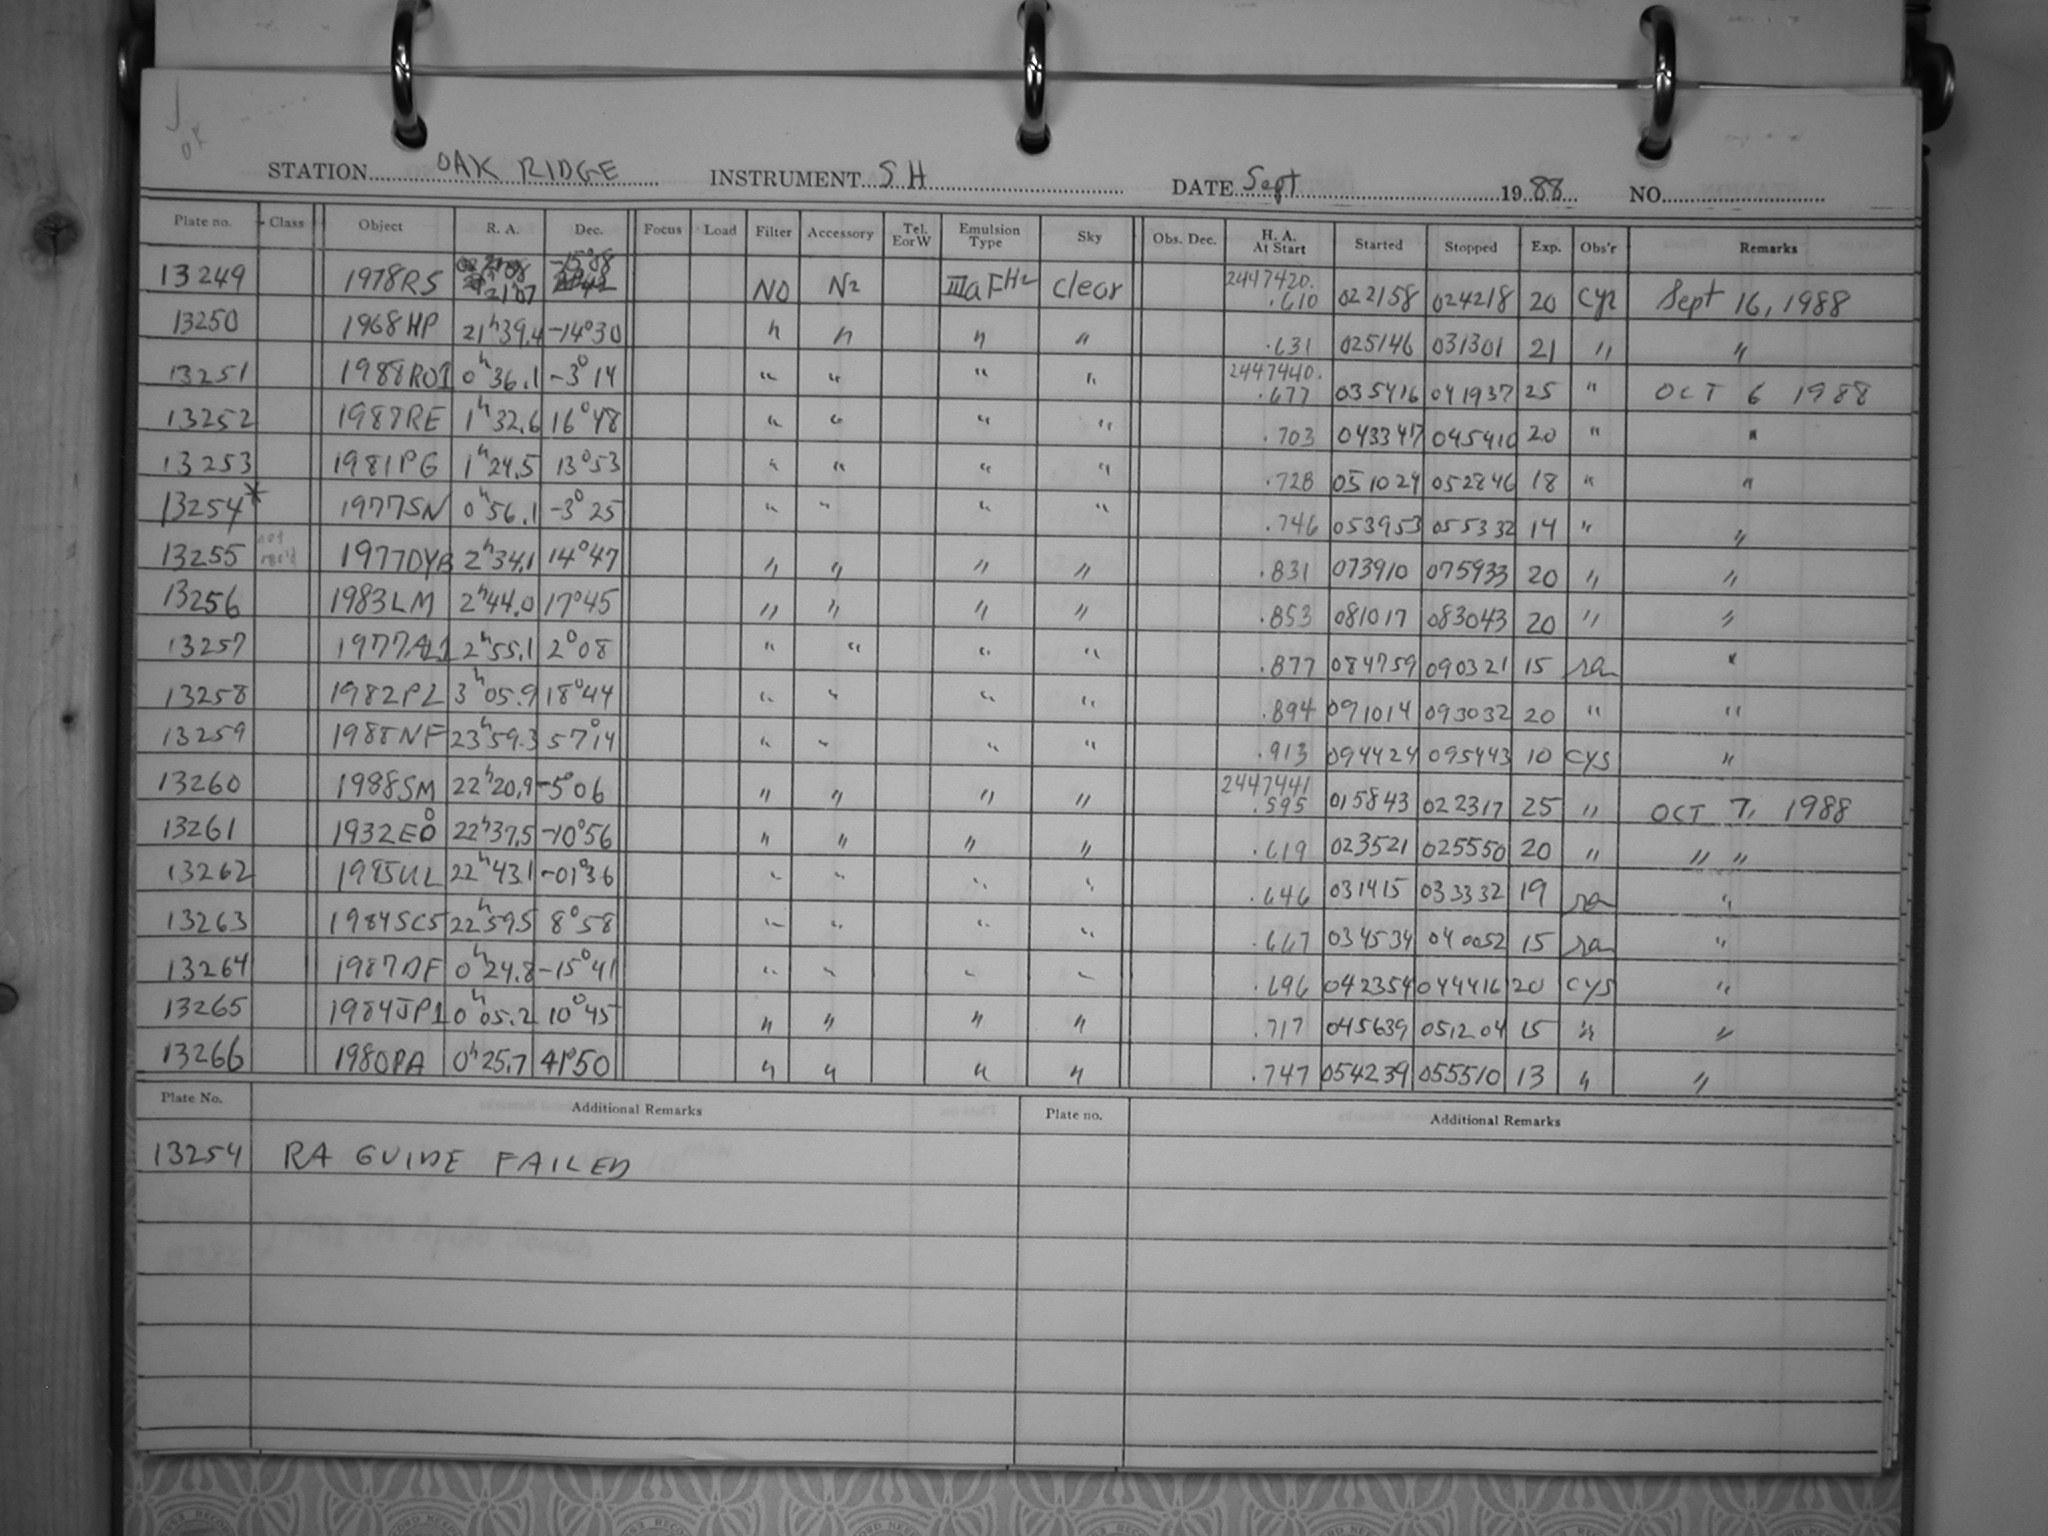 J
OK
STATION OAK RIDGE INSTRUMENT SH DATE Sept 1988 NO.
Plate no. Class Object R. A. Dec. Focus Load Filter Accessory Tel. E or W Emulsion Type Sky Obs. Dec. H. A. At Start Started Stopped Exp. Obs'r Remarks
13249 1978RS 21 07 -15 08 NO N2 IIIaF H2 clear 2447420. .610 022158 024218 20 Sept 16, 1988
13250 1968HP 21h39.4 -14°30 " " " " .631 025146 031301 21 " "
13251 1988RO1 0h36.1 -3°14 " " " " 2447440. .677 035416 041937 25 " OCT 6 1988
13252 1988RE 1h32.6 16°48 " " " " .703 043347 045410 20 " "
13253 1981PG 1h24.5 13°53 " " " " .728 051024 052846 18 " "
13254* 1977SN 0h56.1 -3°25 " " " " .746 053953 055332 14 " "
13255 not rec'd 1977DYB 2h34.1 14°47 " " " " .831 073910 075933 20 " "
13256 1983LM 2h44.0 17°45 " " " " .853 081017 083043 20 " "
13257 1977AL1 2h55.1 2°08 " " " " .877 084759 090321 15 "
13258 1982PL 3h05.9 18°44 " " " " .894 091014 093032 20 " "
13259 1988NF 23h59.3 57°14 " " " " .913 094424 095443 10 CYS "
13260 1988SM 22h20.9 -5°06 " " " " 2447441 .595 015843 022317 25 " OCT 7, 1988
13261 1932EO 22h37.5 -10°56 " " " " .619 023521 025550 20 " " "
13262 1985UL 22h43.1 -01°36 " " " " .646 031415 033332 19 "
13263 1984SC5 22h59.5 8°58 " " " " .667 034534 040052 15 "
13264 1987DF 0h24.8 -15°41 " " " " .696 042354 044416 20 CYS "
13265 1984JP1 0h05.2 10°45 " " " " .717 045639 051204 15 " "
13266 1980PA 0h25.7 41°50 " " " " .747 054239 055510 13 " "
Plate No. Additional Remarks Plate no. Additional Remarks
13254 RA GUIDE FAILED